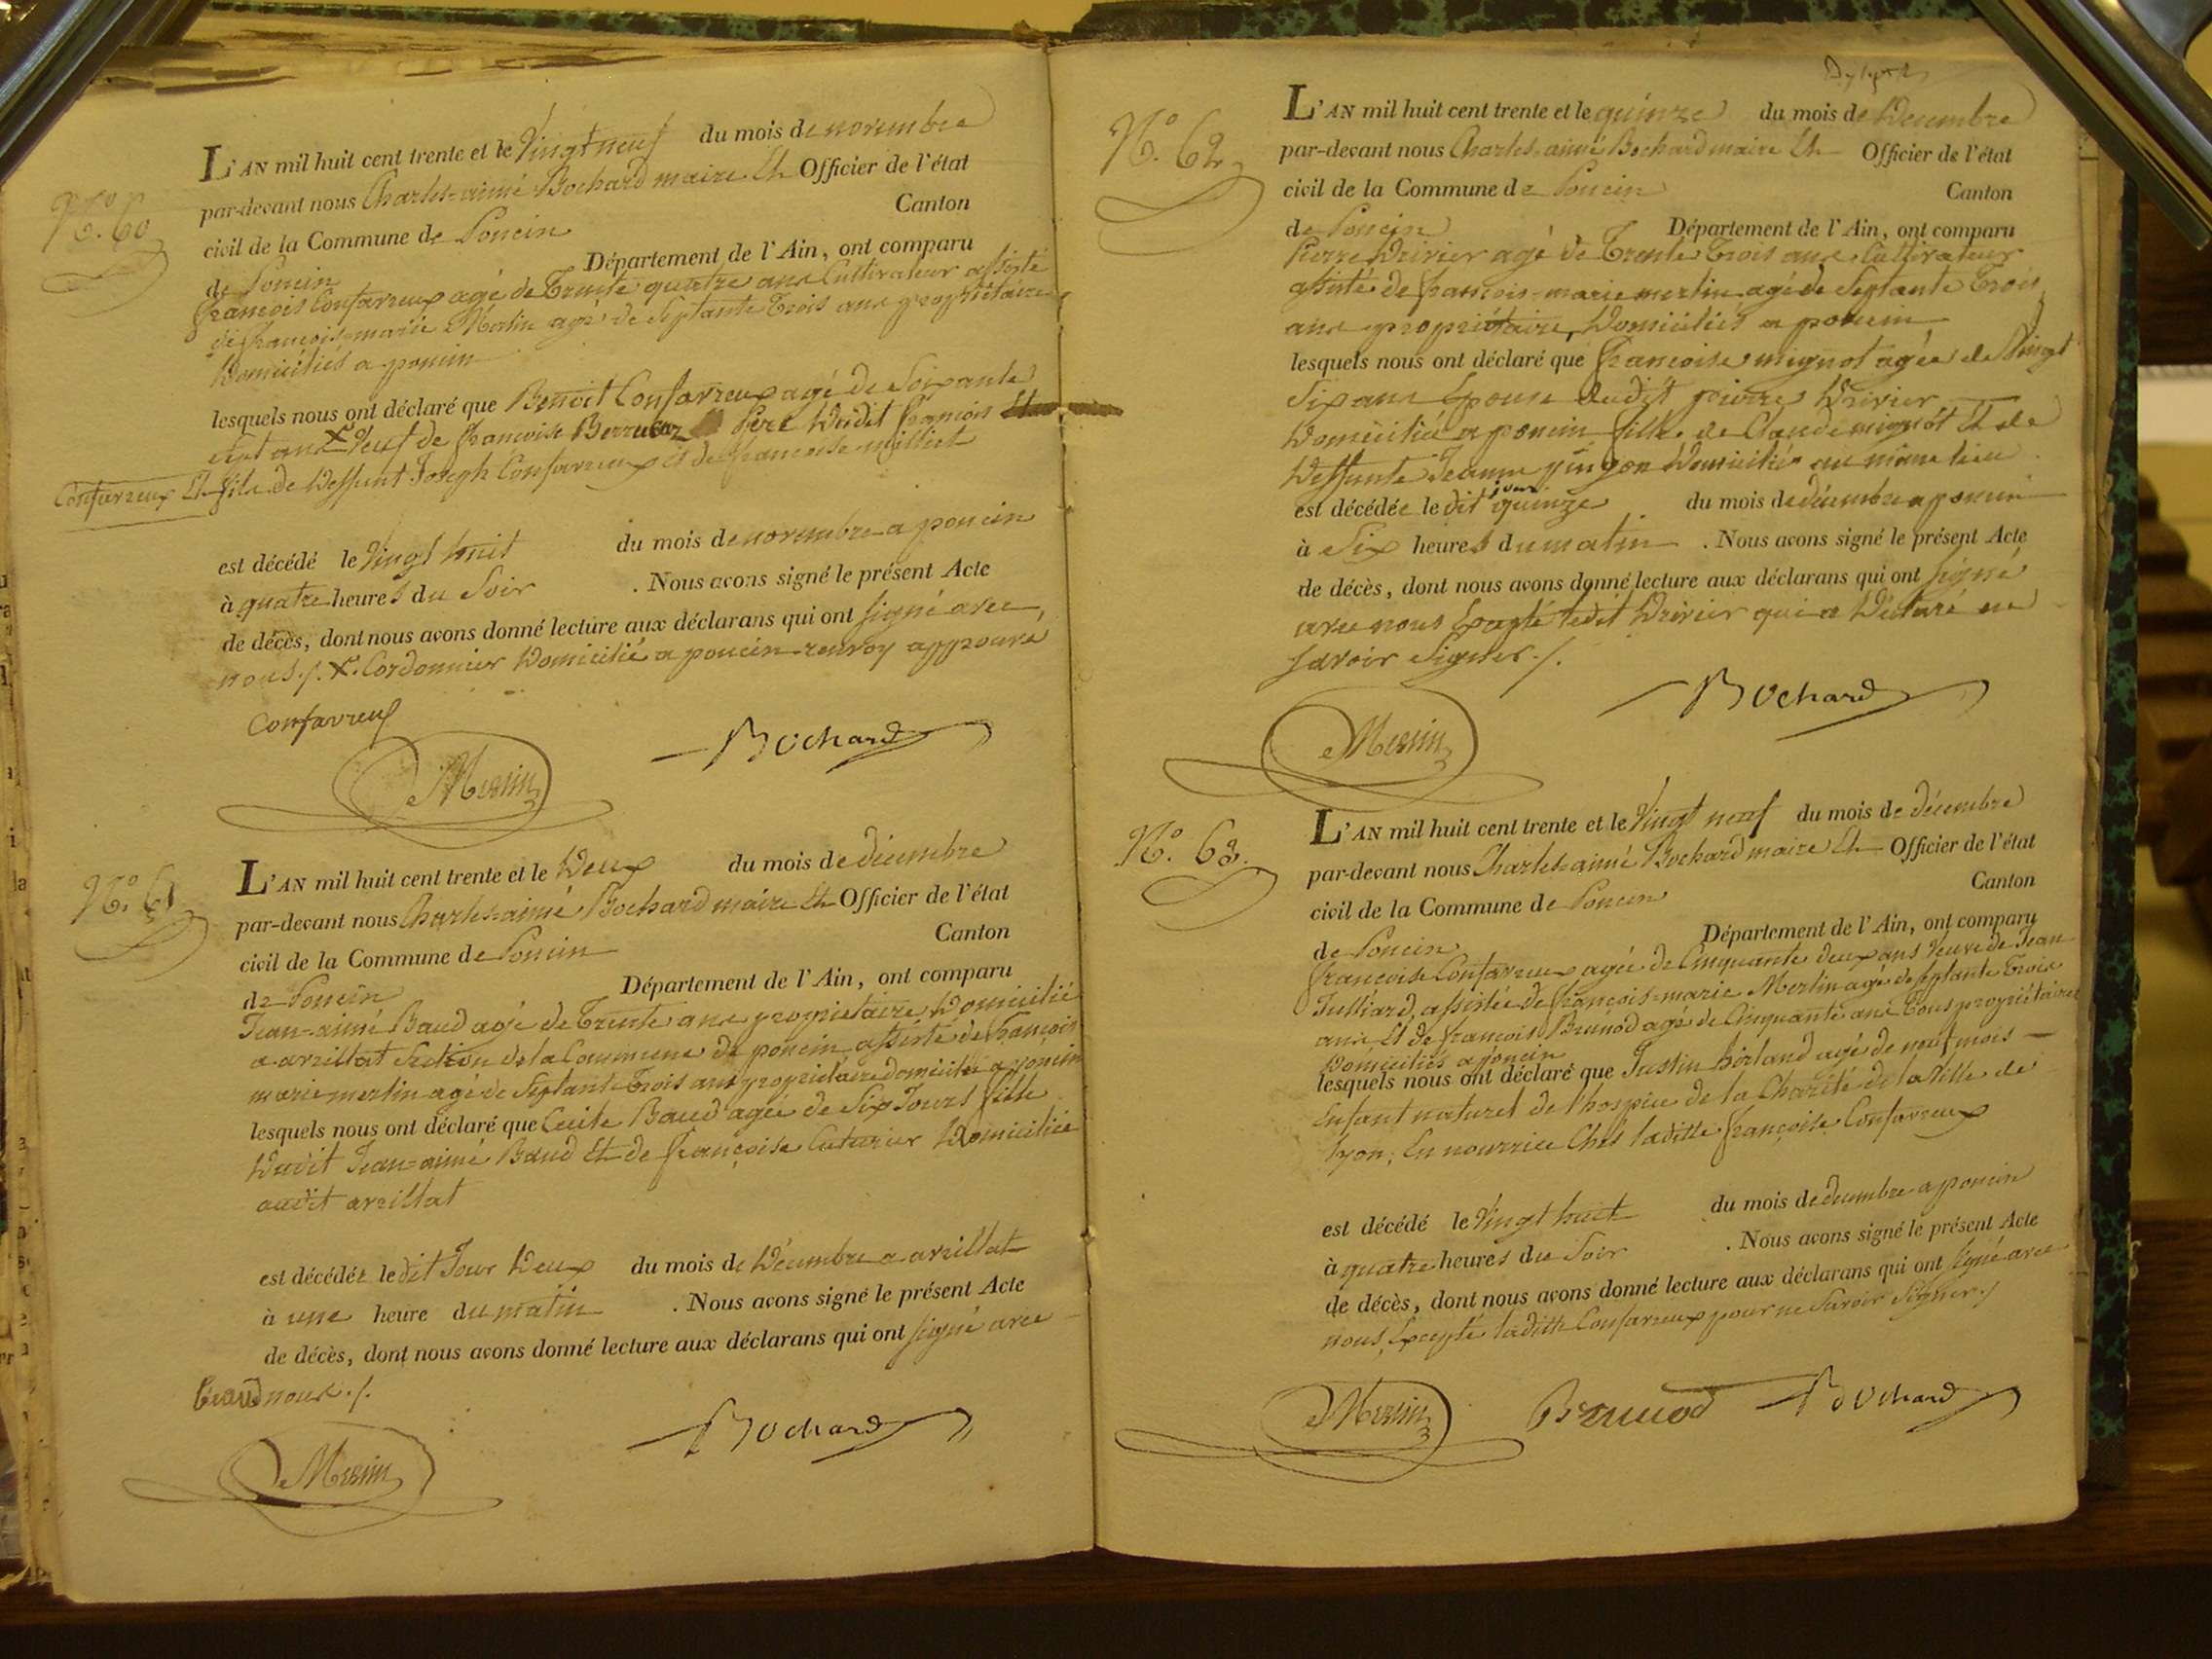 N.º 60
L'AN mil huit cent trente et le Vingt neuf du mois de novembre
par-devant nous Charles-aimé Bochard maire Et Officier de l'état
civil de la Commune de Poncin Canton
de Poncin Département de l'Ain, ont comparu
françois Confavreux agé de Trente quatre ans Cultivateur assisté
de françois-marie Merlin agé de Septante Trois ans propriétaire
Domiciliés a poncin
lesquels nous ont déclaré que Benoit Confavreux agé de Soixante
sept ans X Veuf de françoise Père Dudit françois
Confavreux Et fils de Deffunt Joseph Confavreux et de françoise millet
est décédé le Vingt huit du mois de novembre a poncin
à quatre heures du Soir . Nous avons signé le présent Acte
de décès, dont nous avons donné lecture aux déclarans qui ont signé avec
nous./. X. Cordonnier Domicilié a poncin renvoy approuvé
Confavreux
Merlin
Bochard
N.º 61
L'AN mil huit cent trente et le Deux du mois de décembre
par-devant nous Charles-aimé Bochard maire Et Officier de l'état
civil de la Commune de Poncin Canton
de Poncin Département de l'Ain, ont comparu
Jean-aimé Baud agé de Trente ans propriétaire Domicilié
a arzillat Section de la Commune de poncin assisté de françois
marie merlin agé de Septante Trois ans propriétaire domicilié a poncin
lesquels nous ont déclaré que Cecile Baud agée de Six Jours fille
Dudit Jean-aimé Baud Et de françoise Domiciliée
audit arzillat
est décédée ledit Jour Deux du mois de Décembre a arzillat
à une heure du matin . Nous avons signé le présent Acte
de décès, dont nous avons donné lecture aux déclarans qui ont signé avec
Beaud nous./.
Merlin
Bochard
N.º 62
L'AN mil huit cent trente et le quinze du mois de Décembre
par-devant nous Charles-aimé Bochard maire Et Officier de l'état
civil de la Commune de Poncin Canton
de Poncin Département de l'Ain, ont comparu
Pierre Drivier agé de Trente Trois ans Cultivateur
assisté de françois-marie merlin agé de Septante Trois
ans propriétaire, Domiciliés a poncin
lesquels nous ont déclaré que françoise mignot agée de Vingt
Six ans Epouse dudit pierre Drivier
Domiciliée a poncin fille de Claude mignot Et de
Deffunte Jeanne pingon Domiciliée au même lieu
est décédée le dit jour quinze du mois de décembre a poncin
à Six heures du matin . Nous avons signé le présent Acte
de décès, dont nous avons donné lecture aux déclarans qui ont signé
avec nous Excepté ledit Drivier qui a Déclaré ne
savoir Signer./.
Merlin
Bochard
N.º 63.
L'AN mil huit cent trente et le Vingt neuf du mois de décembre
par-devant nous Charles-aimé Bochard maire Et Officier de l'état
civil de la Commune de Poncin Canton
de Poncin Département de l'Ain, ont comparu
françoise Confavreux agée de Cinquante deux ans Veuve de Jean
Julliard, assistée de françois-marie Merlin agé de Septante Trois
ans Et de françois Brunod agé de Cinquante ans Tous propriétaires
Domiciliés a poncin
lesquels nous ont déclaré que Justin agé de neuf mois
Enfant naturel de l'hospice de la Charité de la Ville de
Lyon, En nourrice Chés laditte françoise Confavreux
est décédé le Vingt huit du mois de décembre a poncin
à quatre heures du Soir . Nous avons signé le présent Acte
de décès, dont nous avons donné lecture aux déclarans qui ont signé avec
nous, Excepté laditte Confavreux pour ne Savoir Signer./
Merlin
Brunod
Bochard